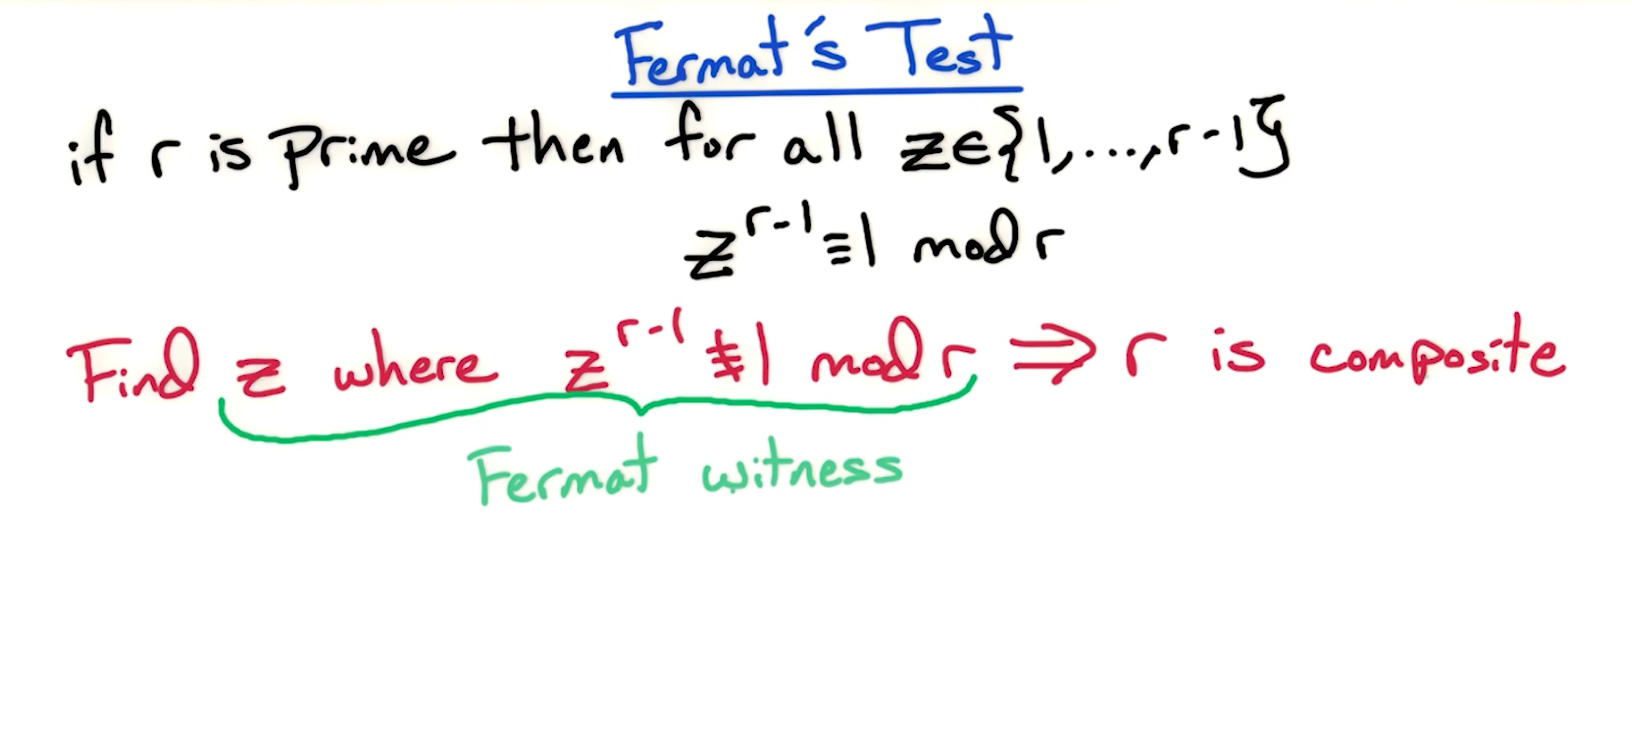 Fermat's Test
if r is prime then for all z∈{1,...,r-1}
z^{r-1} ≡ 1 mod r
Find z where z^{r-1} ≢ 1 mod r ⇒ r is composite
Fermat witness